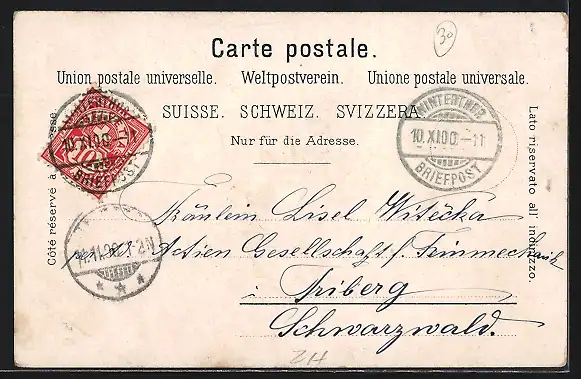 30
Carte postale.
Union postale universelle. Weltpostverein. Unione postale universale.
SUISSE. SCHWEIZ. SVIZZERA
Nur für die Adresse.
Côté réservé à
Lato riservato all' indirizzo.
WINTERTHUR
10.XI.00.-11
BRIEFPOST
10.XI.00
BRIEFPOST
11.11.00
Fräulein Lisel Witečka
per Adr. Actien Gesellschaft f. Feinmechanik
i Triberg
Schwarzwald.
ZH